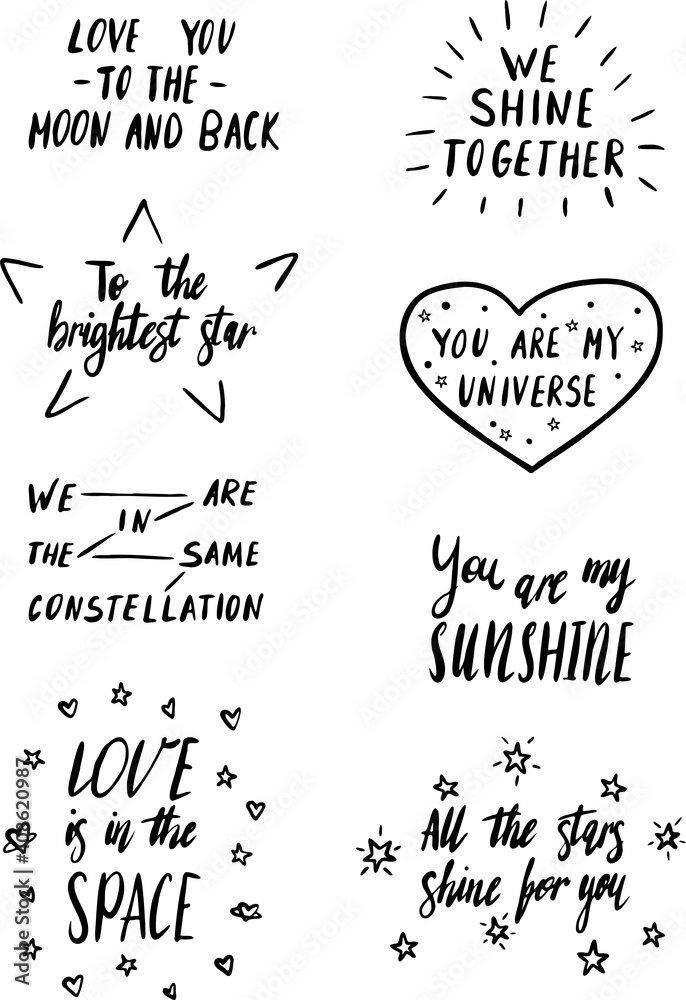 LOVE YOU
- TO THE -
MOON AND BACK
WE
SHINE
TOGETHER
To the
brightest star
YOU ARE MY
UNIVERSE
WE ARE
IN
THE SAME
CONSTELLATION
You are my
SUNSHINE
LOVE
is in the
SPACE
All the stars
shine for you
Adobe Stock